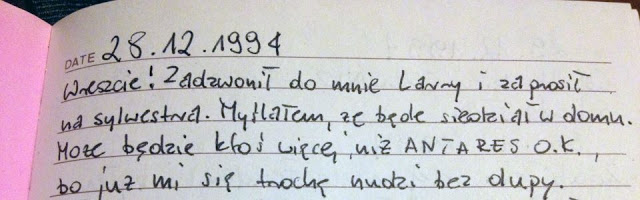 DATE 28.12.1994
Wreszcie! Zadzwonił do mnie Larry i zaprosił
na sylwestra. Myślałem, że będę siedział w domu.
Może będzie ktoś więcej niż ANTARES O.K.,
bo już mi się trochę nudzi bez dupy.